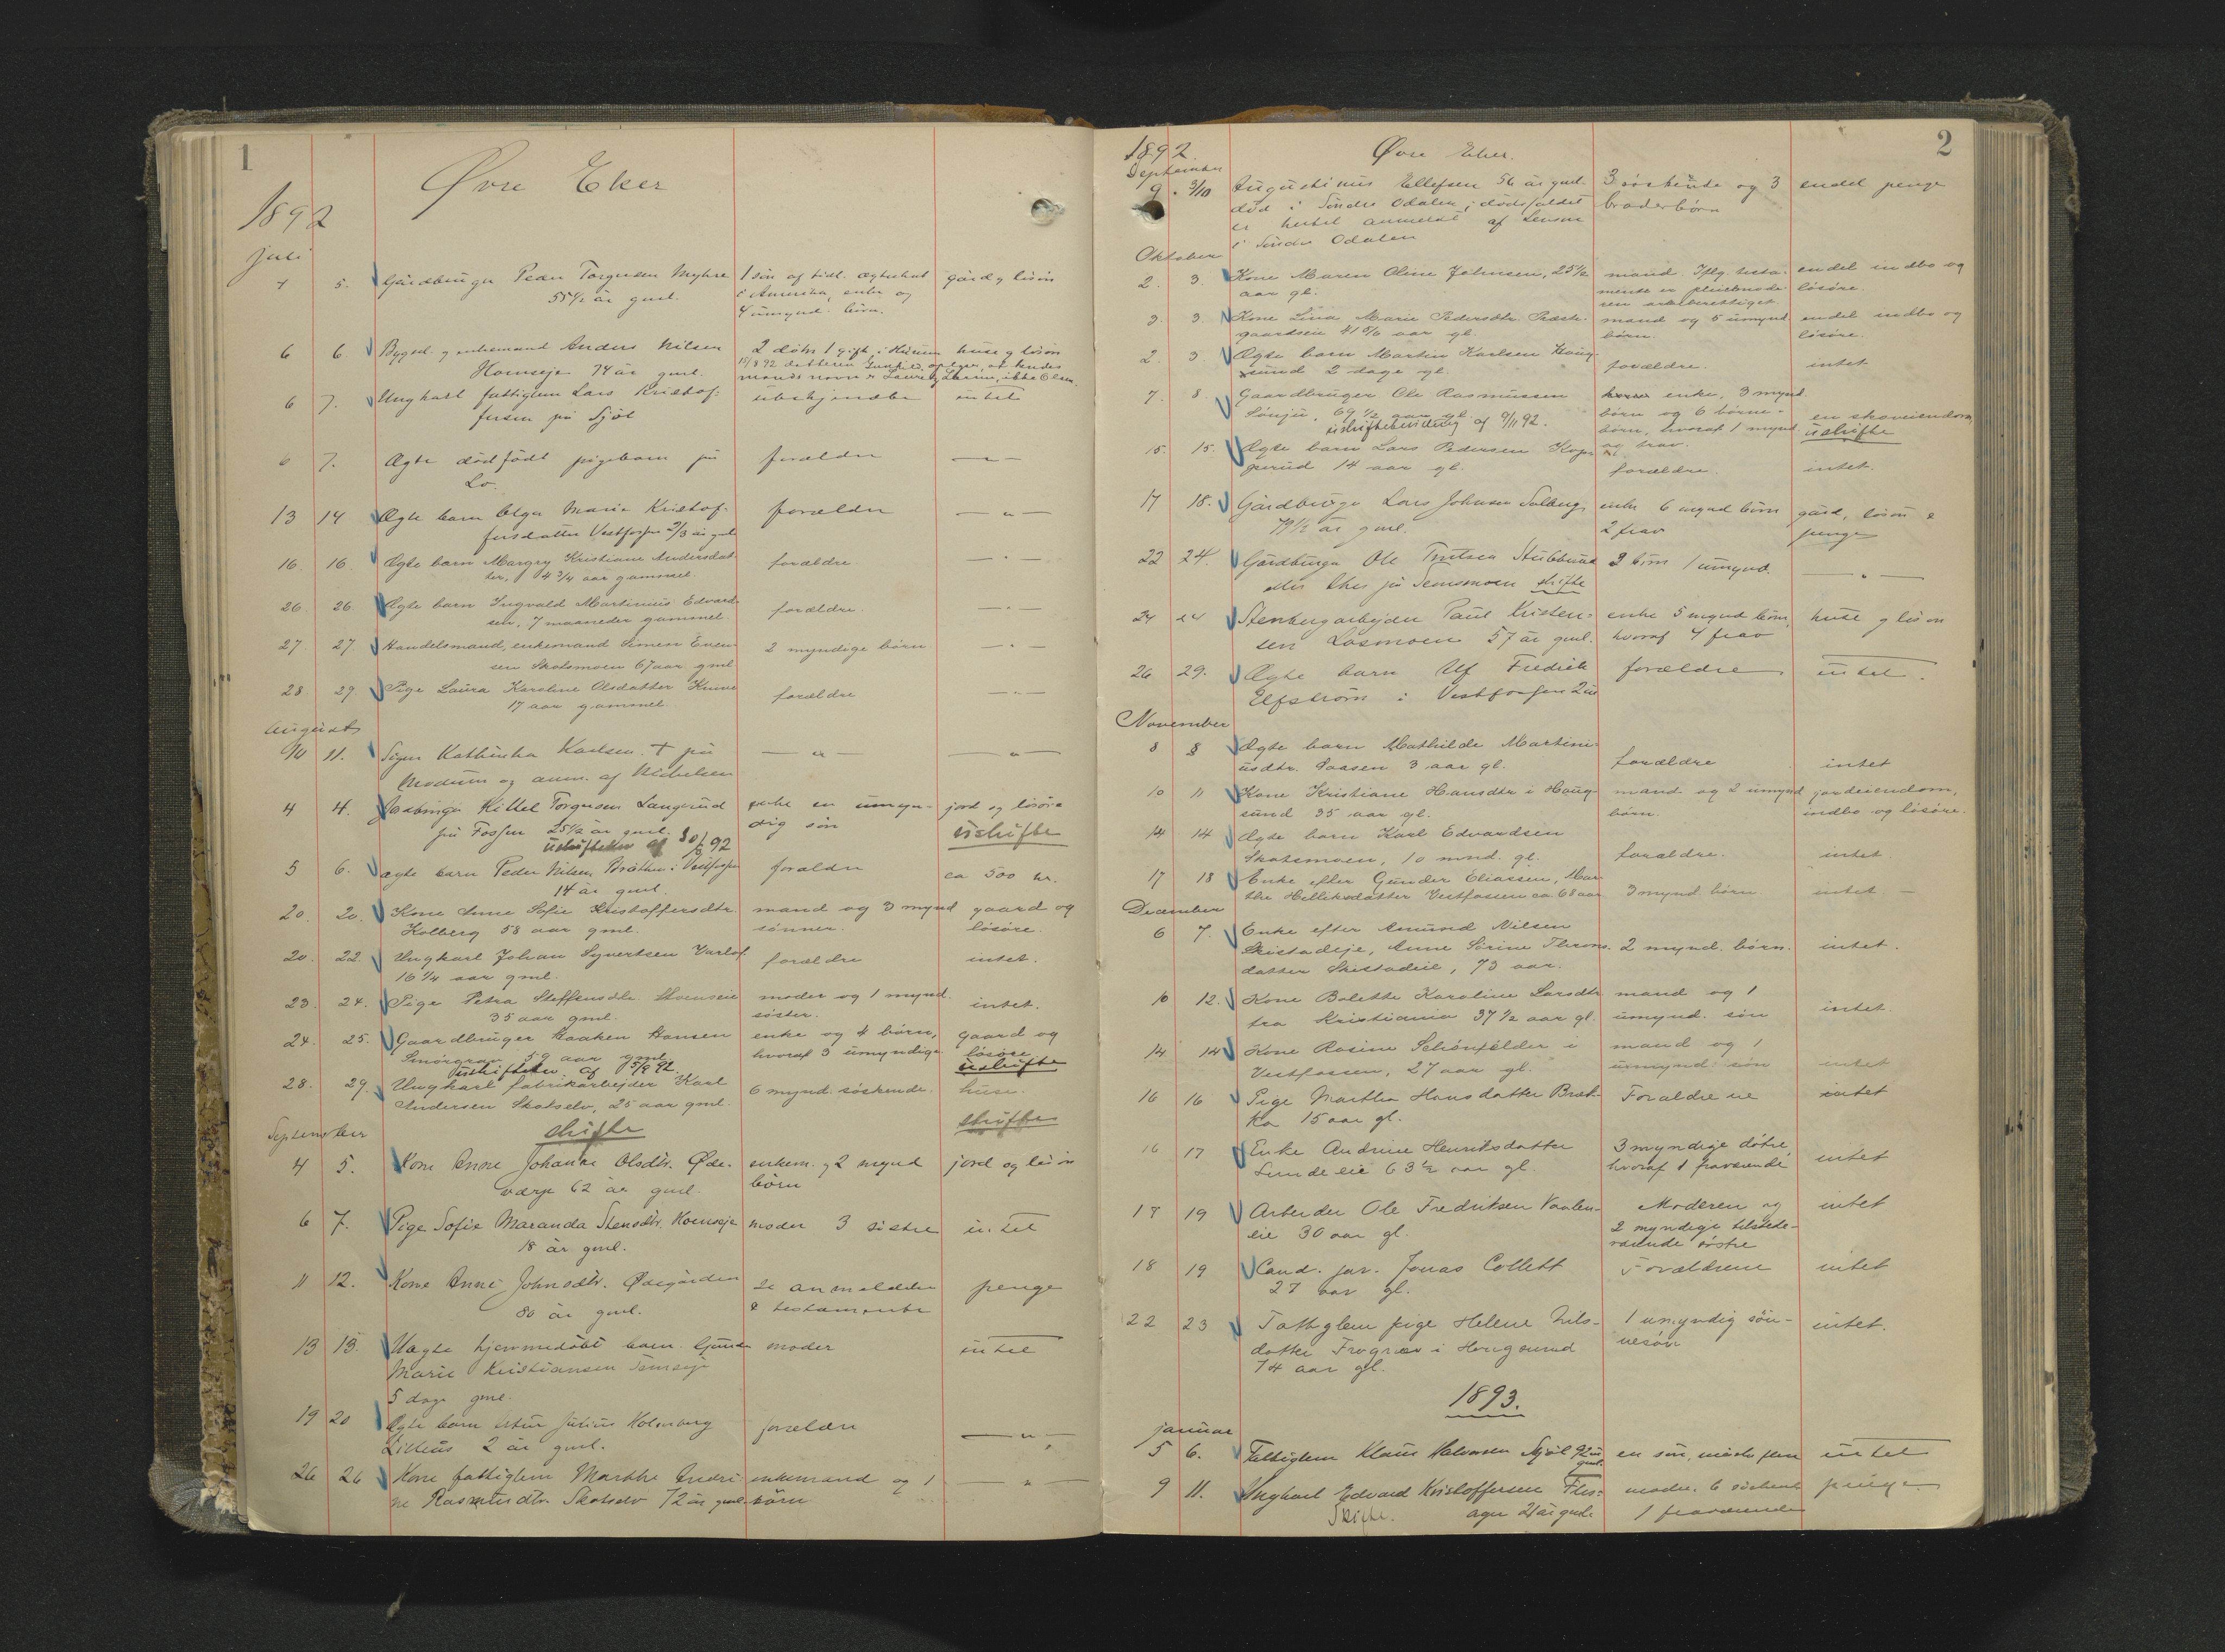 1
Øvre Eker
1892
juli
4 5. Gårdbruger Peder Torgersen Myhre 1 søn af tidl. ægteskab gård g løsøre
55 1/2 år gml. i Amerika, enke og
4 umynd. børn.
6 6. Bygsel. g enkemand Anders Nilsen 2 døtre 1 gift i Hurum huse g løsøre
Hoenseje 74 år gml. 15/8 92 datteren Gunhild oplyser, at hendes
mands navn er Lauritz Larsen, ikke Olsen.
6 7. Ungkarl fattiglem Lars Kristof- ubekjendte intet
fersen på Sjøl
6 7. Ægte dødfødt pigebarn på forældre — " —
Lo.
13 14 Ægte barn Olga Marie Kristof- forældre — " —
fersdatter Vestfossen 2/3 år gml
16 16. Ægte barn Margry Kristiane Andersdat forældre — " —
ter, 4 3/4 aar gammel.
26. 26. Ægte barn Ingvald Martinius Edvard- forældre. — " —
sen, 7 maaneder gammel.
27. 27. Handelsmand, enkemand Simen Even- 2 myndige børn — " —
sen Skotsmoen 67 aar gml
28. 29. Pige Laura Karoline Olsdatter forældre — " —
17 aar gammel.
August
11. Signe Kathinka Karlsen + på — " — — " —
Modum og anm. af
4 4. Kittel Torgersen Langerud enke en umyn- jord og løsøre
på Fossen 25 1/2 år gml. dig søn uskifte
uskiftebev af 30/8 92
5 6. ægte barn Peder Nilsen Bråthen i Vestfossen forældre ca 500 kr.
14 år gml.
20. 20. Kone Anne Sofie Kristoffersdtr. mand og 3 mynd gaard og
Kolberg 58 aar gml. sønner. løsøre.
20. 22. Ungkarl Johan Syvertsen Varlo. forældre intet.
16 1/4 aar gml.
23. 24. Pige Petra Steffensdtr. moder og 1 mynd. intet.
35 aar gml. søster.
24. 25. Gaardbruger Haaken Hansen enke og 4 børn, gaard og
Smørgrav 59 aar gml. hvoraf 3 umyndige. løsøre
uskiftebev. af 15/9 92. uskifte
28. 29. Ungkarl fabrikarbejder Karl 6 mynd. søskende. huse.
Andersen Skotselv, 25 aar gml.
September skifte skifte
4 5. Kone Anne Johanne Olsdtr. Øde- enkem. g 2 mynd jord og løsøre
værge 62 år gml. børn
6 7. Pige Sofie Maranda Stensdtr. Hoenseje moder 3 søstre intet
18 år gml.
11 12. Kone Anne Johnsdtr. Ødegården se anmeldelse penge
80 år gml. & testamente
13 13. Uægte hjemmedøbt barn moder intet
Marie Kristiansen Semseje
5 dage gml.
19 20 Ægte barn Julius Holmberg forældre — " —
2 år gml.
26 26 Kone fattiglem Marthe Andri- enkemand og 1 — " —
ne Rasmusdtr. Skotselv 72 år gml. børn
2
1892. Øvre Eker.
September
9. 3/10 Augustinus Ellefsen 56 år gml. 3 søskende og 3 endel penge
død i Søndre Odalen; dødsfaldet broderbørn
er hertil anmeldt af Lensm
i Søndre Odalen
Oktober
2. 3. Kone Maren Oline Johnsen, 25 1/2 mand. Iflg. testa- endel indbo og
aar gl. mente er løsøre.
arveberettiget.
3. 3. Kone Lina Marie Pedersdtr. Præste- mand og 5 umynd endel indbo og
gaardseie 41 5/6 aar gl. børn. løsøre.
2. 3. Ægte barn Martin Karlsen Houg- forældre. intet
sund 2 dage gl.
7. 8. Gaardbruger Ole Rasmussen enke, 3 mynd.
Sønju, 69 1/2 aar gl. børn og 6 børne- en skoveiendom
uskiftebevilling af 9/11 92. børn, hvoraf 1 mynd. uskifte
15. 15. Ægte barn Lars Pedersen Kop-
perud 14 aar gl. forældre. intet.
17 18. Gårdbruger Lars Johnsen Solberg enke 6 mynd børn gård, løsøre &
79 1/2 år gml. 2 frav penge
22 24. Gårdbruger Ole Knutsen Stubberud 3 børn 1 umynd. — " —
eller Eker på Semsmoen skifte
24 24 Stenbergarbejder Paul Kristen- enke 5 mynd børn, huse g løsøre
sen Losmoen 57 år gml. hvoraf 4 frav
26 29. Ægte barn Ulf Fredrik forældre intet.
Elfstrøm i Vestfossen 2 år
November
8 8 Ægte barn Mathilde Martini-
usdtr. Aasen 3 aar gl. forældre intet
10 11 Kone Kristiane Hansdtr i Houg- mand og 2 umynd jordeiendom,
sund 35 aar gl. børn. indbo og løsøre.
14 14 Ægte barn Karl Edvardsen
Skotsmoen, 10 mnd. gl. forældre. intet.
17 18 Enke efter Gunder Eliassen, Mar-
the Helleksdatter Vestfossen ca 68 aar 3 mynd børn. intet —
December
6 7. Enke efter Amund Nilsen
Skistadeje, Anne Sørine Thrond- 2 mynd. børn. intet.
datter Skistadeie, 73 aar.
10 12. Kone Bolette Karoline Larsdtr mand og 1
fra Kristiania 37 1/2 aar gl. umynd. søn intet.
14 14 Kone Rosine Schönfelder i mand og 1
Vestfossen, 27 aar gl. umynd. søn intet
16 16 Pige Marthea Hansdatter Bræk- Forældrene intet
ka 15 aar gl.
16 17 Enke Andrine Henriksdatter 3 myndige døtre, intet
Lundeeie 63 1/2 aar gl. hvoraf 1 fraværende
17 19 Arbeider Ole Fredriksen Vaalen- Moderen og intet
eie 30 aar gl. 2 myndige tilstede-
værende søstre
18 19 Cand. jur. Jonas Collett Forældrene intet
27 aar gl.
22 23 Fattiglem pige Helene Nils- 1 umyndig søn- intet.
datter i Hougsund nesøn
74 aar gl.
1893.
januar
5 6. Fattiglem Klaus Halvorsen Sjøl 92 år en søn, måske flere intet
gml.
9 11. Ungkarl Edvard Kristoffersen Fles- moder, 6 søskende penge
Skifte. ager 21 år gml. 1 fraværende